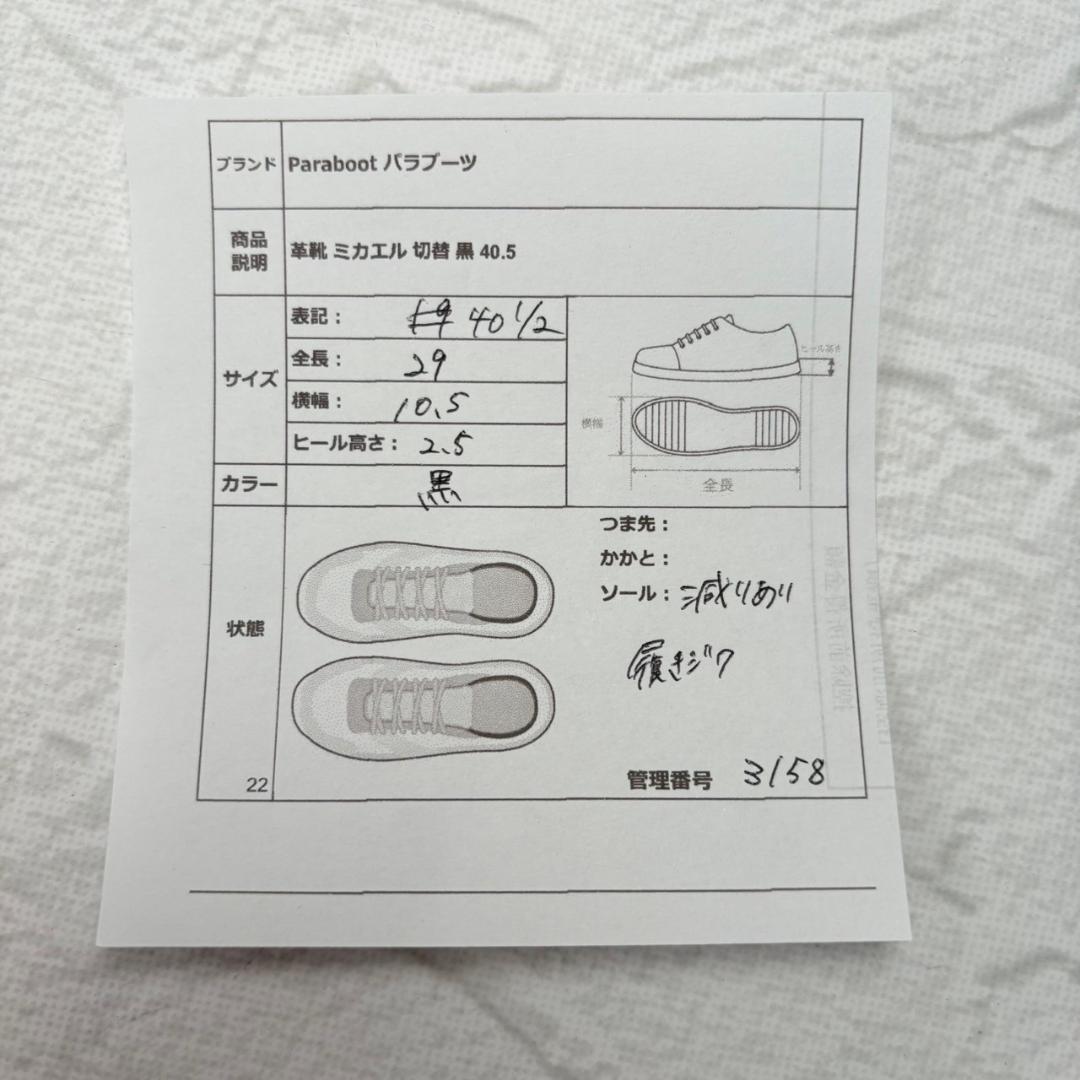 ブランド Paraboot パラブーツ
商品説明 革靴 ミカエル 切替 黒 40.5
サイズ
表記： 40 1/2
全長： 29
横幅： 10.5
ヒール高さ： 2.5
ヒール高さ
横幅
全長
カラー 黒
状態
つま先：
かかと：
ソール： 減りあり
履きジワ
22
管理番号 3158